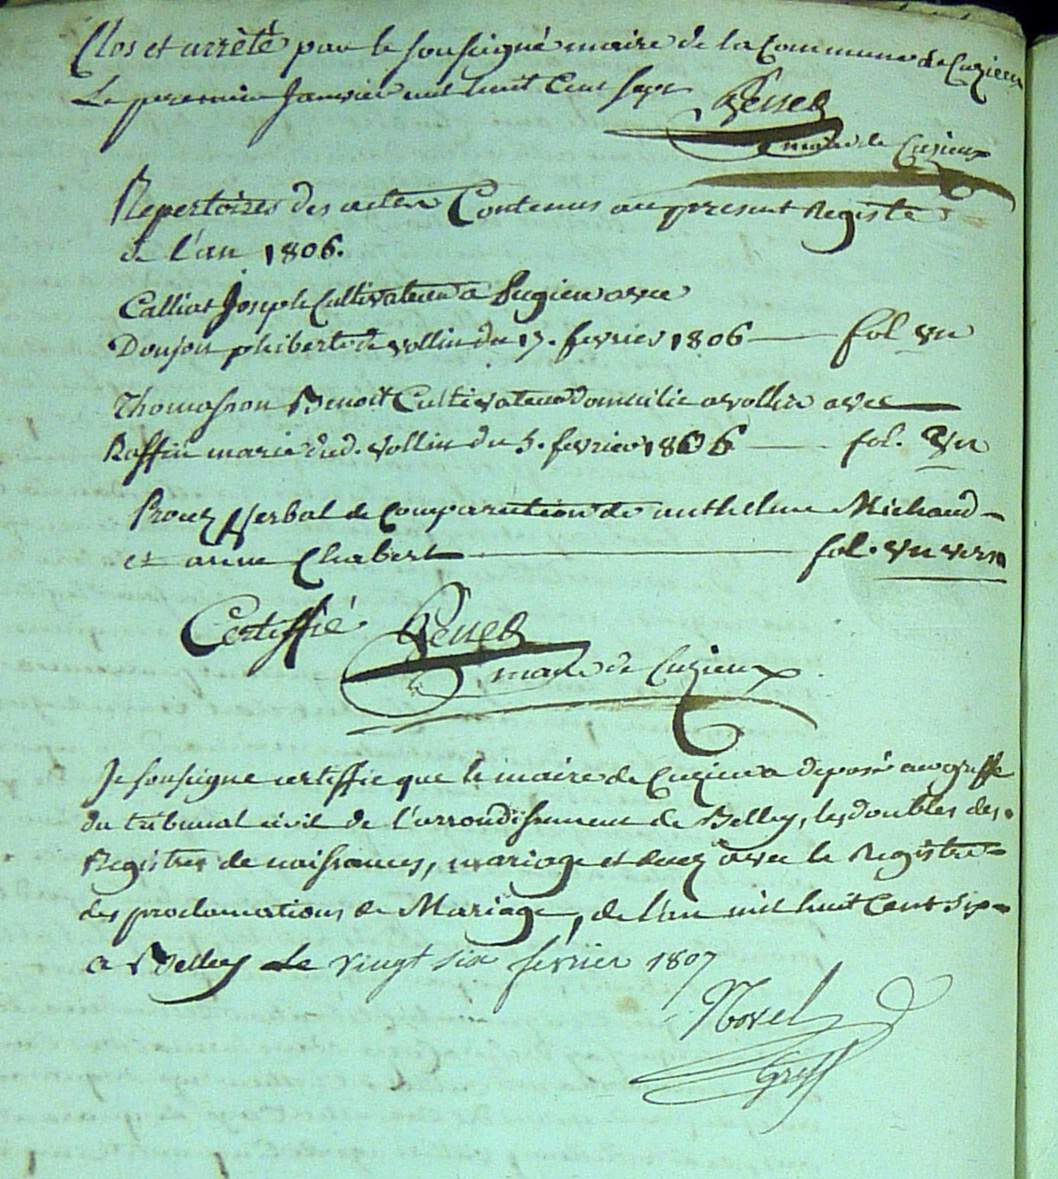 Clos et arrêté par le soussigné maire de la Commune de Cuzieux
Le premier Janvier mil huit Cent Sept
maire de Cuzieux
Repertoires des actes Contenus au present Registe
de l'an 1806.
Calliat Joseph Cultivateur a Pugieu avec
Donjon phiberte de vollin du 17. fevrier 1806 fol un
Thomasson Benoit Cultivateur domicilié a vollin avec
Raffin marie dud. vollin du 5. fevrier 1806 fol. un
Procez Verbal de Comparution de anthelme Michaud
et anne Chabert fol. un verso
Certiffié
maire de Cuzieux
Je soussigne certiffie que le maire de Cuzieu a deposé au greffe
du tribunal civil de l'arrondissement de Belley, les doubles des
Registres de naissances, mariage et decez avec le Registre
des proclamations de Mariage, de l'an mil huit Cent six
a Belley Le vingt six fevrier 1807
Greff